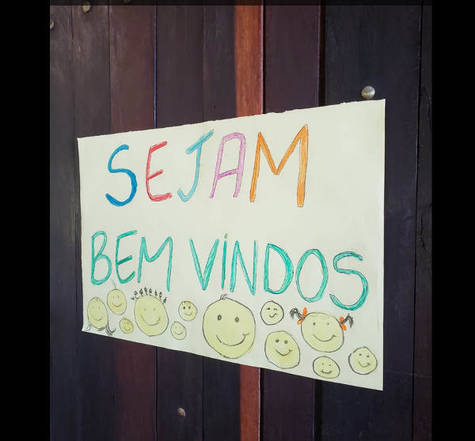 SEJAM
BEM VINDOS